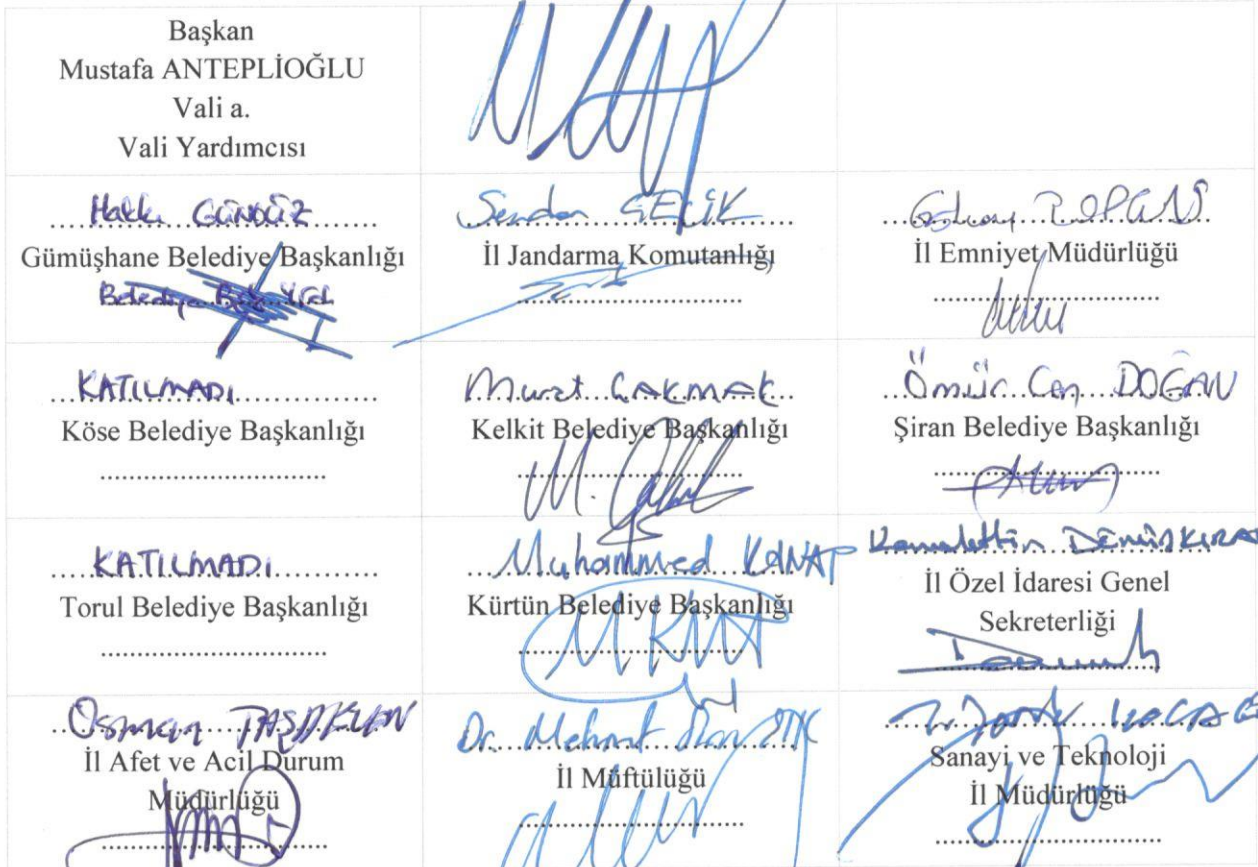 Başkan
Mustafa ANTEPLİOĞLU
Vali a.
Vali Yardımcısı
Hakkı GÜNDÜZ
Gümüşhane Belediye Başkanlığı
Belediye Bşk. Yrd.
Serdar ÇELİK
İl Jandarma Komutanlığı
İl Emniyet Müdürlüğü
KATILMADI
Köse Belediye Başkanlığı
Murat ÇAKMAK
Kelkit Belediye Başkanlığı
Ömür Can DOĞAN
Şiran Belediye Başkanlığı
KATILMADI
Torul Belediye Başkanlığı
Muhammed KANAP
Kürtün Belediye Başkanlığı
Kamulettin DEMİRKIRAN
İl Özel İdaresi Genel
Sekreterliği
Osman
İl Afet ve Acil Durum
Müdürlüğü
Dr. Mehmet
İl Müftülüğü
Sanayi ve Teknoloji
İl Müdürlüğü